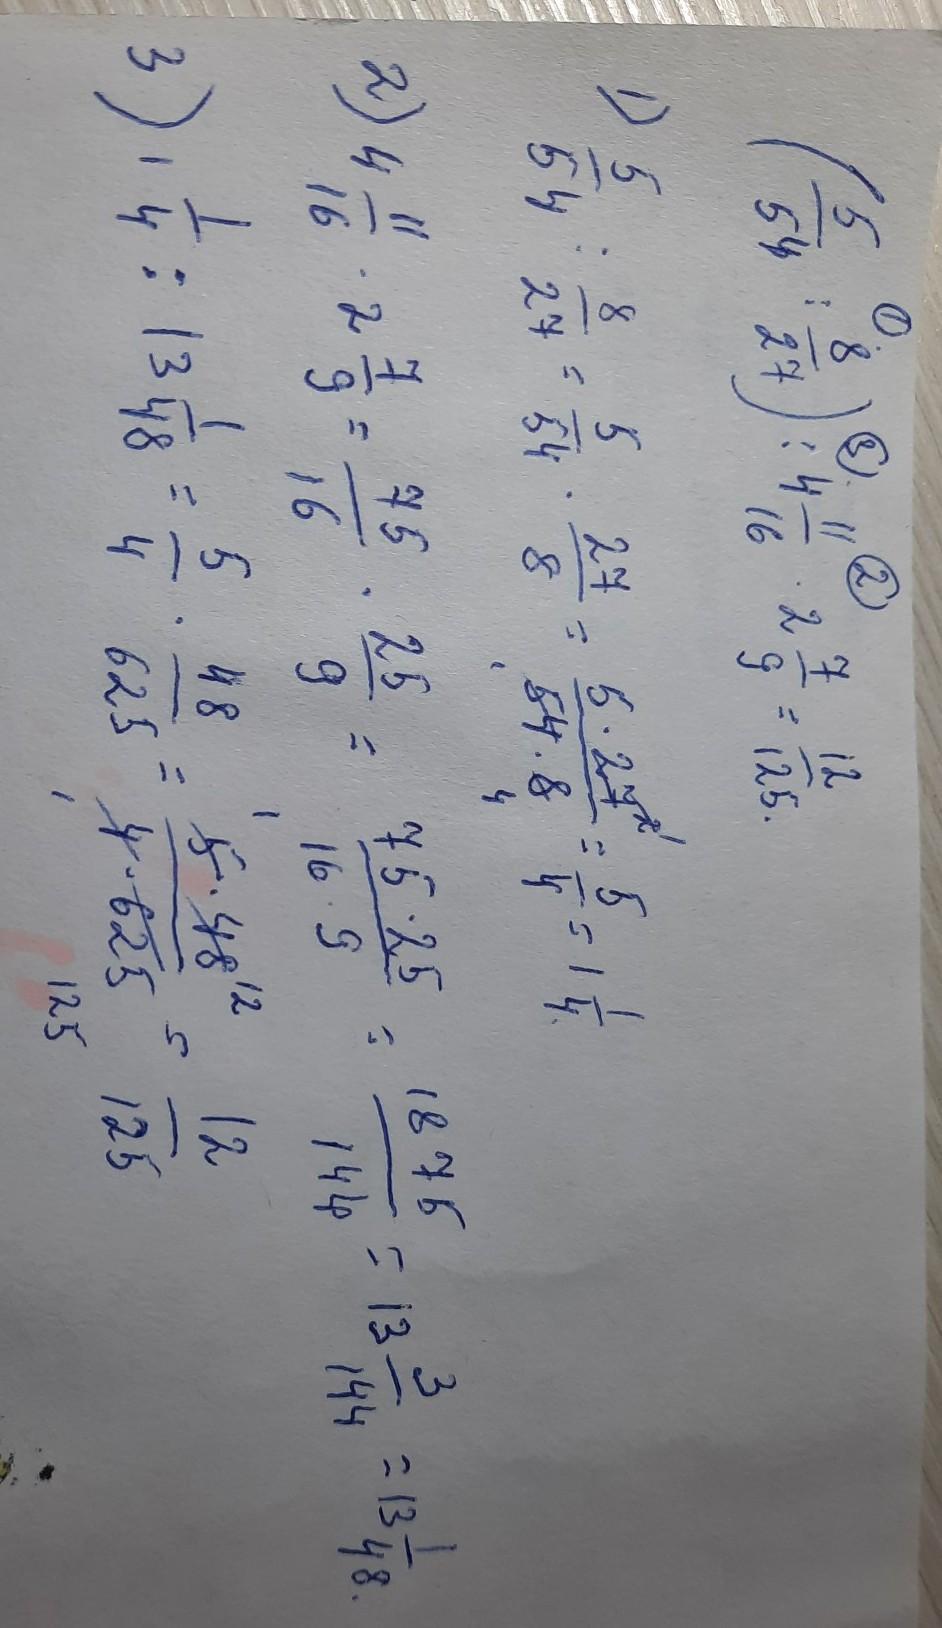 (5/54 : 8/27) : 4 11/16 · 2 7/9 = 12/125.
① ③ ②
1) 5/54 : 8/27 = 5/54 · 27/8 = 5·27/54·8 = 5/4 = 1 1/4.
2) 4 11/16 · 2 7/9 = 75/16 · 25/9 = 75·25/16·9 = 1875/144 = 13 3/144 = 13 1/48.
3) 1 1/4 : 13 1/48 = 5/4 · 48/625 = 5·48/4·625 = 12/125
1 12 1 125